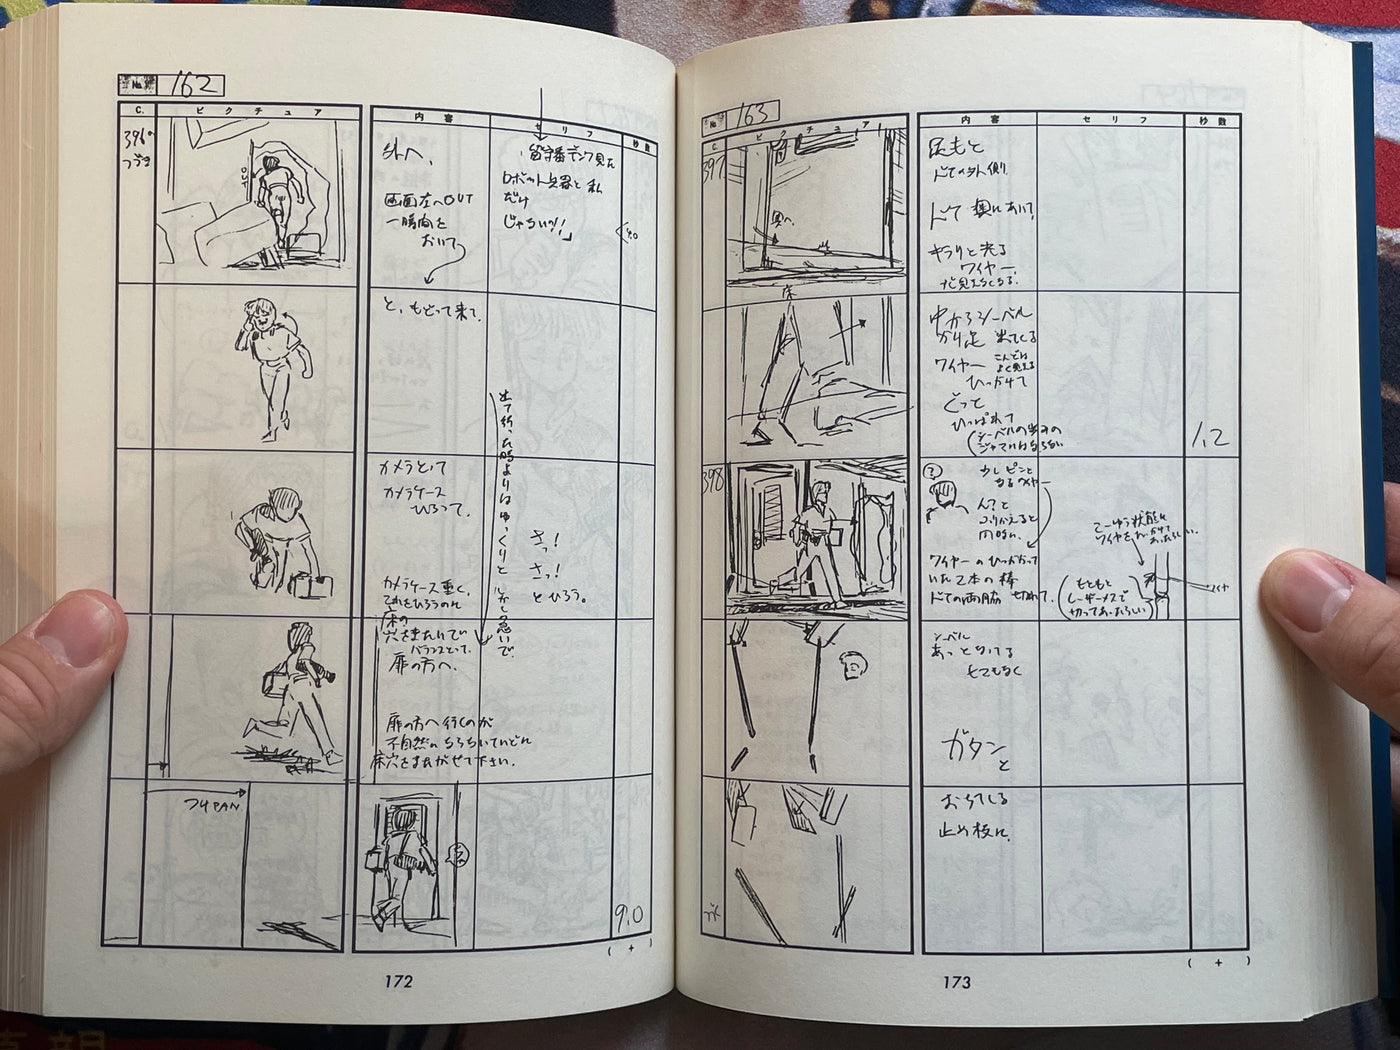 No. 162
C.
ピクチュア
内容
セリフ
秒数
396の
つづき
OUT
外へ、
画面左へOUT
一瞬間を
おいて
留守番デンワ見た
ロボット兵器と私
だけ
じゃない!!」
と、もどって来て、
カメラとって
カメラケース
ひろって、
出て行った時よりはゆっくりと しかし急いで
さっ!
さっ!
とひろう。
カメラケース重く、
これをひろうのに
床の
穴をまたいで
バランスとって、
扉の方へ、
扉の方へ行くのが
不自然にならないていどに
床穴をまたがせて下さい。
フォロPAN
9.0
( + )
172
No. 163
C.
ピクチュア
内容
セリフ
秒数
397
奥へ
床
足もと
ドアの外側
ドア 奥にあいて
キラリと光る
ワイヤー、
すぐ見えなくなる。
中からシーベル
の足 出てくる
ワイヤー
こんどは
よく見える
ひっかけて
ぐっと
ひっぱって
(シーベルの歩みの
ジャマにはならない
1.2
398
?
少しピンと
なるワイヤー
ん? と
ふりかえると
同時に、
ワイヤーのひっかかって
いた2本の棒
ドアの両脇 切れて、
こーゆう状態に
ワイヤをかけて
あったらしい。
(もともと
レーザーメスで
切ってあったらしい)
ワイヤ
シーベル
あっと見てる
もなく
ガタン
と
おちてくる
止め板に、
( + )
173